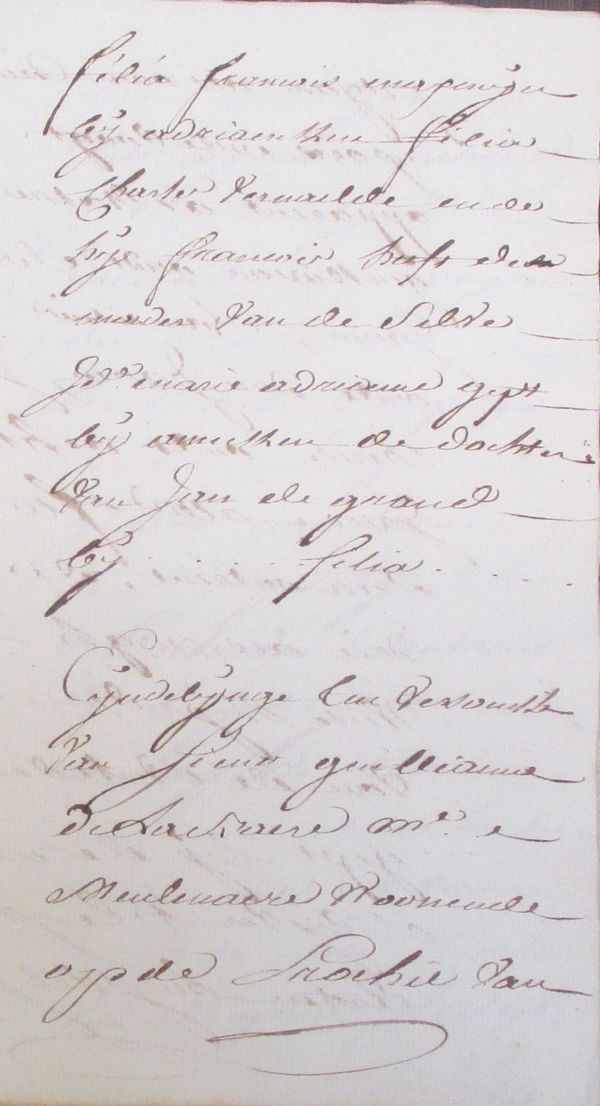 filia francois
by adriaenken filia
Charles Vervailde ende
hy francois heeft de
moeder van de selve
Jo.e marie adrienne gept
by anneken de dochter
van Jan de grand
by . . . filia . . .
Eyndelynge ten versoucke
van sieur guilliaume
De Lachaere m.e
Meulenaere woonende
op de Prochie van